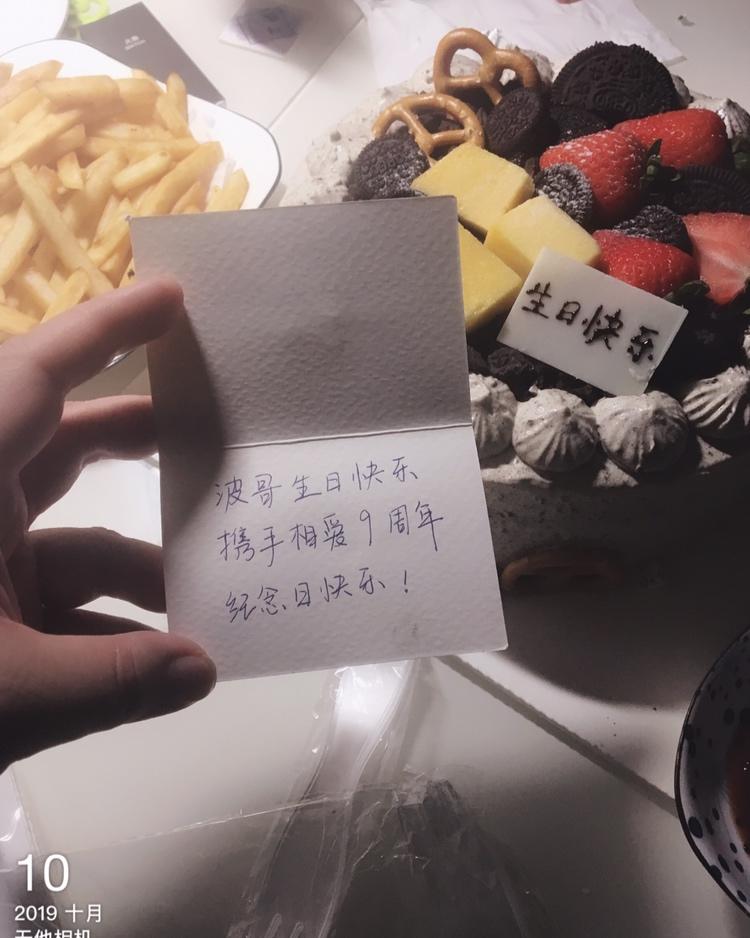 生日快乐
波哥生日快乐
携手相爱9周年
纪念日快乐！
10
2019 十月
无他相机